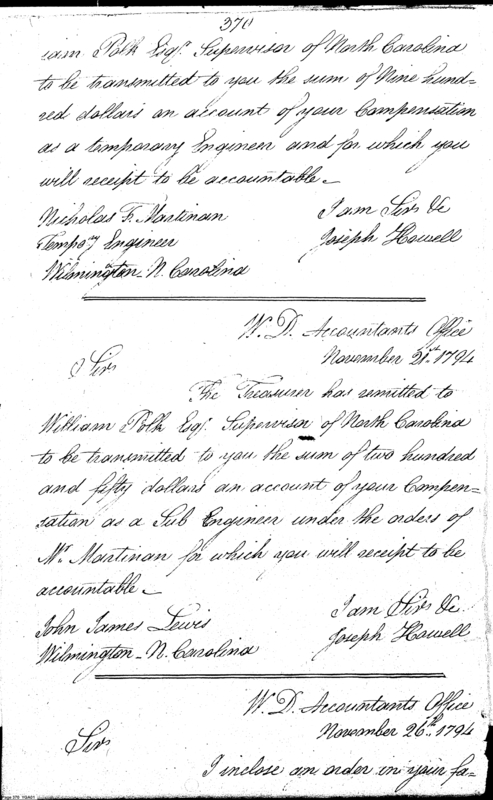 370
iam Polk Esqr. Supervisor of North Carolina
to be transmitted to you the sum of Nine hund-
red dollars on account of your Compensation
as a temporary Engineer and for which you
will receipt to be accountable.
Nicholas F. Martinan
I am Sir &c
Tempory Engineer
Joseph Howell
Wilmington N. Carolina
W. D. Accountants Office
November 21st. 1794
Sir
The Treasurer has remitted to
William Polk Esqr. Supervisor of North Carolina
to be transmitted to you the sum of two hundred
and fifty dollars on account of your Compen-
sation as a Sub Engineer under the orders of
Mr. Martinan for which you will receipt to be
accountable.
I am Sir &c
John James Lewis
Joseph Howell
Wilmington N. Carolina
W. D. Accountants Office
November 26th. 1794
Sir
I inclose an order in your fa-